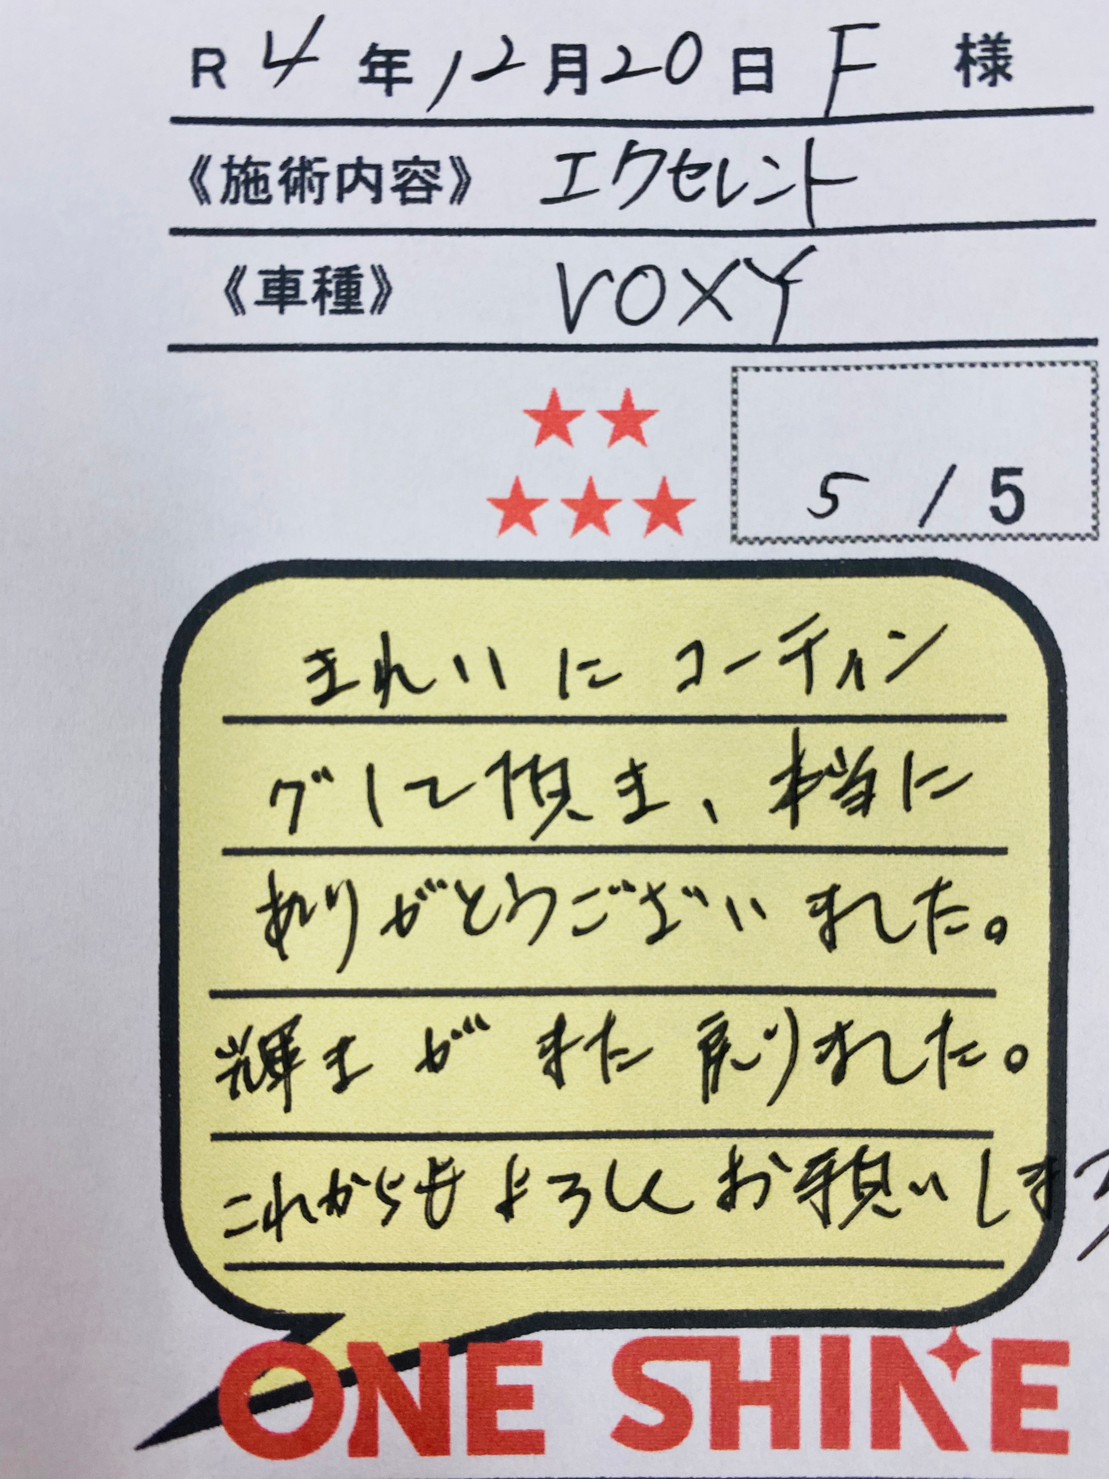 R 4 年 12 月 20 日 F 様
《施術内容》 エクセレント
《車種》 VOXY
5 / 5
きれいに コーティン
グして頂き、本当に
ありがとうございました。
輝きが また 戻りました。
これからも よろしく お願いします
ONE SHINE